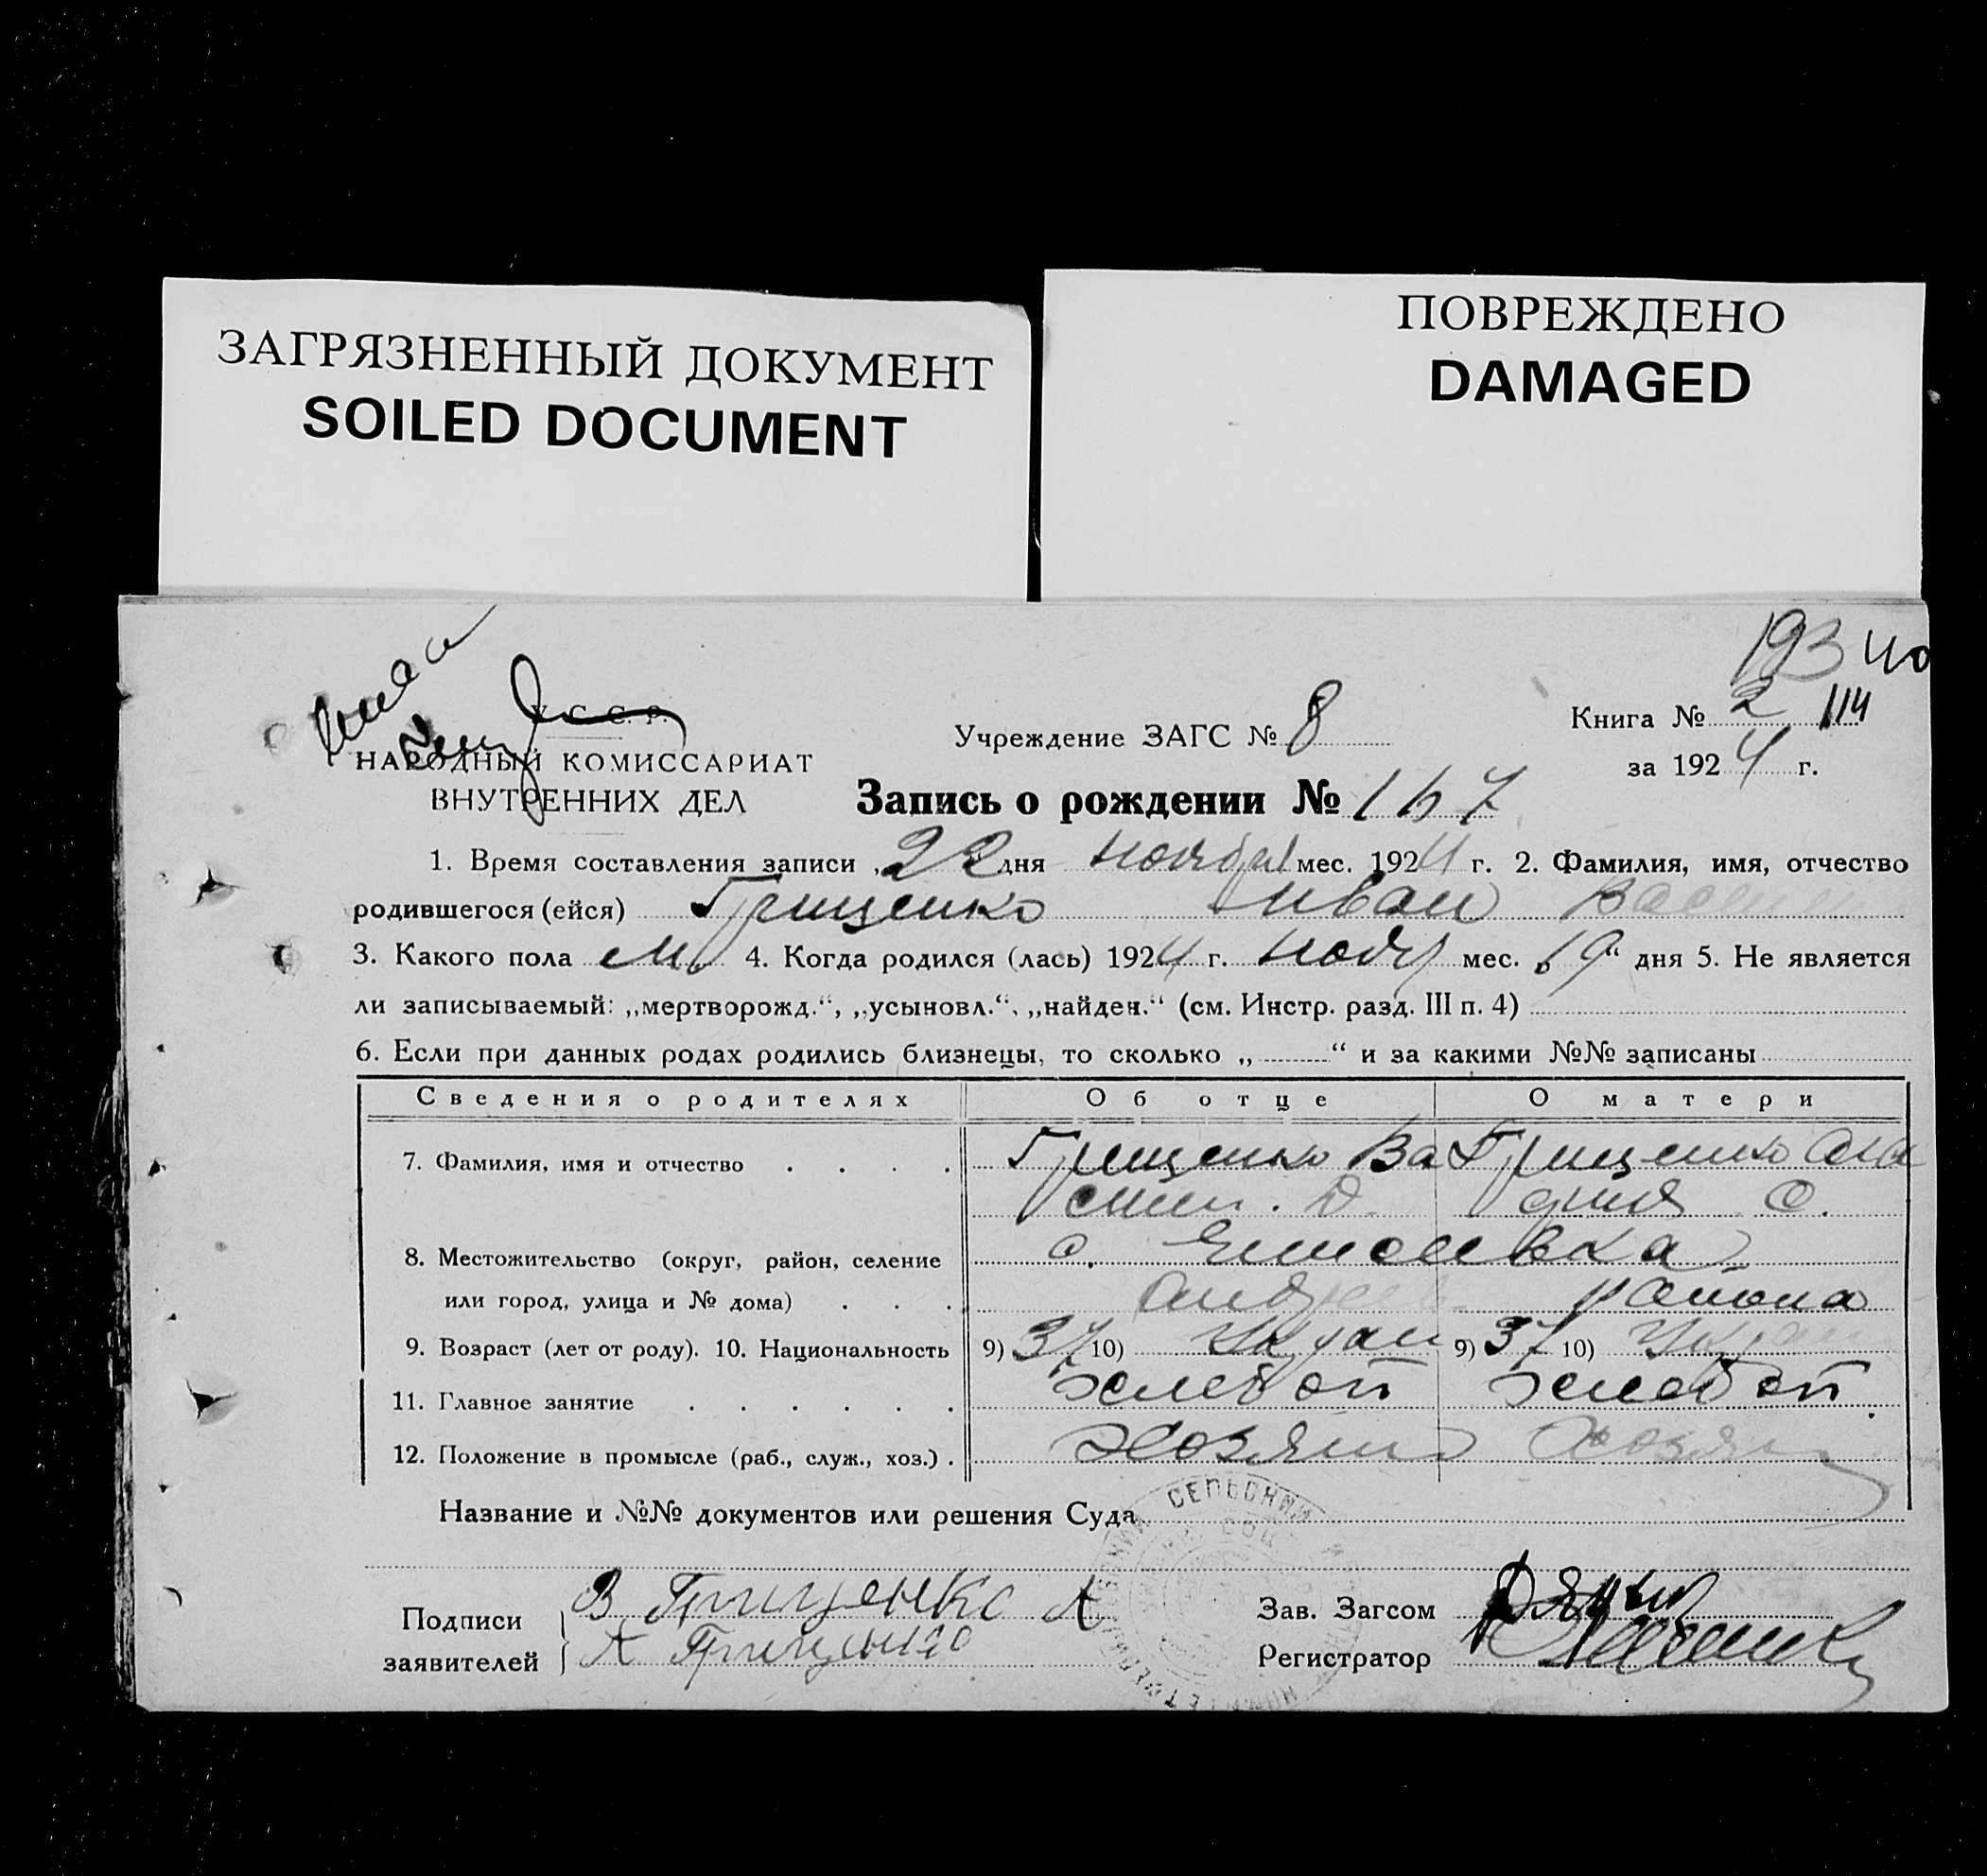 ЗАГРЯЗНЕННЫЙ ДОКУМЕНТ
SOILED DOCUMENT
ПОВРЕЖДЕНО
DAMAGED
193 40
У. С. С. Р.
НАРОДНЫЙ КОМИССАРИАТ
ВНУТРЕННИХ ДЕЛ
Учреждение ЗАГС № 8
Книга № 2 114
за 1924 г.
Запись о рождении № 167
1. Время составления записи „22 дня ноября мес. 1924 г. 2. Фамилия, имя, отчество
родившегося (ейся) Грищенко Иван
3. Какого пола м. 4. Когда родился (лась) 1924 г. нояб мес. „19“ дня 5. Не является
ли записываемый: „мертворожд.“, „усыновл.“, „найден.“ (см. Инстр. разд. III п. 4)
6. Если при данных родах родились близнецы, то сколько „ “ и за какими №№ записаны
Сведения о родителях Об отце О матери
7. Фамилия, имя и отчество Грищенко Ва Грищенко
силий. Д. О.
8. Местожительство (округ, район, селение с.
или город, улица и № дома) района
9. Возраст (лет от роду). 10. Национальность 9) 37 10) Украин 9) 37 10) Украин
11. Главное занятие хлебоп хлебоп.
12. Положение в промысле (раб., служ., хоз.) хозяин хозяи
Название и №№ документов или решения Суда
СЕЛЬСКИЙ
Подписи В Грищенко
заявителей А Грищенко
Зав. Загсом
Регистратор